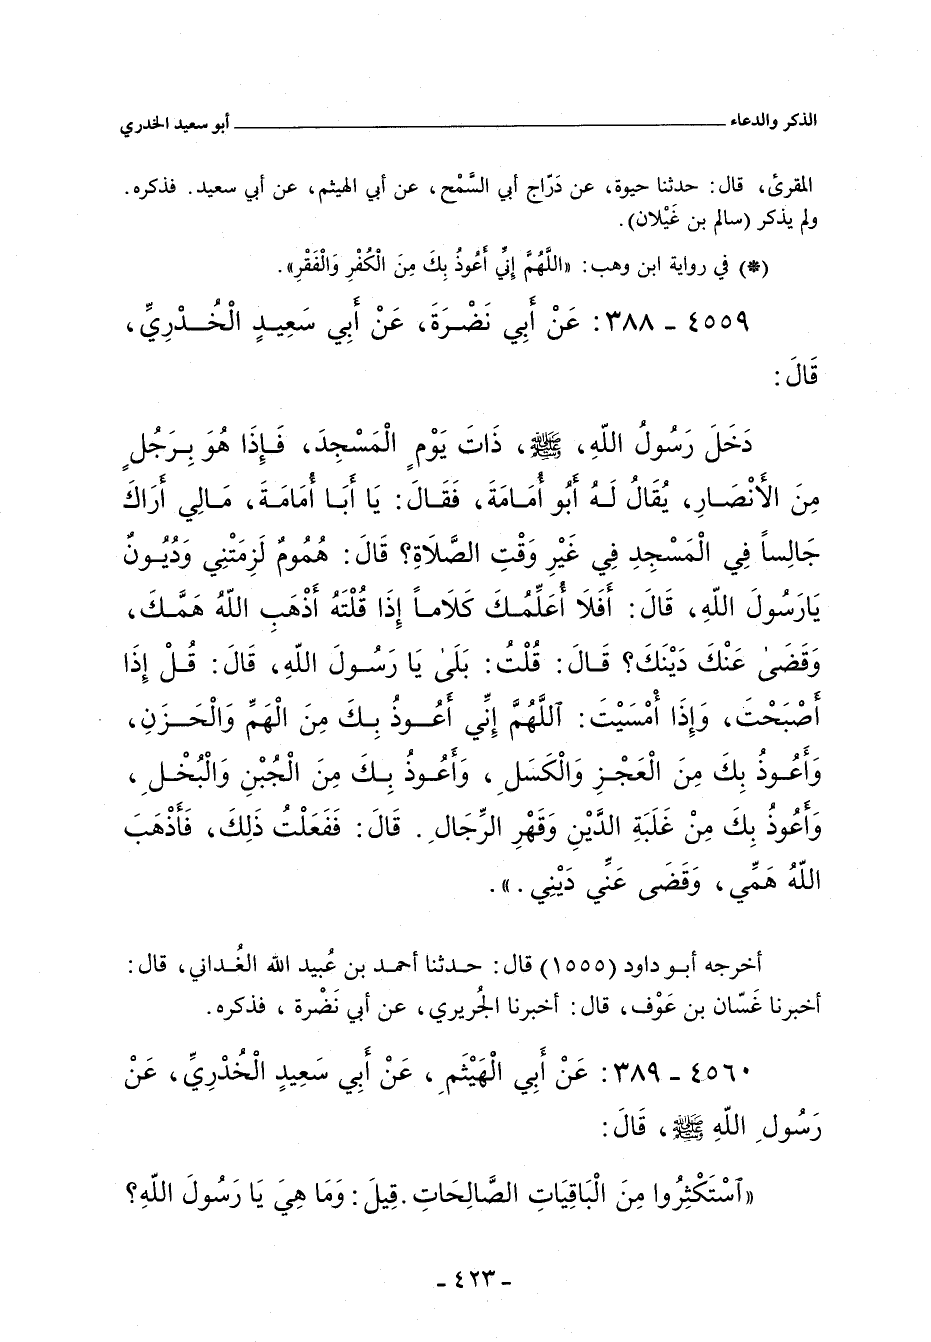 الذكر والدعاء ــــــــــــــــــــ أبو سعيد الخدري
المقرئ، قال: حدثنا حيوة، عن دَرّاج أبي السَّمْح، عن أبي الهيثم، عن أبي سعيد. فذكره.
ولم يذكر (سالم بن غَيْلان).
(*) في رواية ابن وهب: «اللَّهُمَّ إِنِّي أَعُوذُ بِكَ مِنَ الْكُفْرِ وَالْفَقْرِ».
٤٥٥٩ - ٣٨٨: عَنْ أَبِي نَضْرَةَ، عَنْ أَبِي سَعِيدٍ الْخُدْرِيِّ،
قَالَ:
دَخَلَ رَسُولُ اللّهِ، ﷺ، ذَاتَ يَوْمٍ الْمَسْجِدَ، فَإِذَا هُوَ بِرَجُلٍ
مِنَ الأَنْصَارِ، يُقَالُ لَهُ أَبُو أُمَامَةَ، فَقَالَ: يَا أَبَا أُمَامَةَ، مَالِي أَرَاكَ
جَالِساً فِي الْمَسْجِدِ فِي غَيْرِ وَقْتِ الصَّلَاةِ؟ قَالَ: هُمُومٌ لَزِمَتْنِي وَدُيُونٌ
يَارَسُولَ اللّهِ، قَالَ: أَفَلَا أُعَلِّمُكَ كَلَاماً إِذَا قُلْتَهُ أَذْهَبَ اللّهُ هَمَّكَ،
وَقَضَىٰ عَنْكَ دَيْنَكَ؟ قَالَ: قُلْتُ: بَلَىٰ يَا رَسُولَ اللّهِ، قَالَ: قُلْ إِذَا
أَصْبَحْتَ، وَإِذَا أَمْسَيْتَ: اَللَّهُمَّ إِنِّي أَعُوذُ بِكَ مِنَ الْهَمِّ وَالْحَزَنِ،
وَأَعُوذُ بِكَ مِنَ الْعَجْزِ وَالْكَسَلِ، وَأَعُوذُ بِكَ مِنَ الْجُبْنِ وَالْبُخْلِ،
وَأَعُوذُ بِكَ مِنْ غَلَبَةِ الدَّيْنِ وَقَهْرِ الرِّجَالِ. قَالَ: فَفَعَلْتُ ذَلِكَ، فَأَذْهَبَ
اللّهُ هَمِّي، وَقَضَى عَنِّي دَيْنِي.».
أخرجه أبو داود (١٥٥٥) قال: حدثنا أحمد بن عُبيد الله الغُداني، قال:
أخبرنا غَسّان بن عَوْف، قال: أخبرنا الجُريري، عن أبي نَضْرة، فذكره.
٤٥٦٠ - ٣٨٩: عَنْ أَبِي الْهَيْثَمِ، عَنْ أَبِي سَعِيدٍ الْخُدْرِيِّ، عَنْ
رَسُولِ اللّهِ ﷺ، قَالَ:
«اَسْتَكْثِرُوا مِنَ الْبَاقِيَاتِ الصَّالِحَاتِ. قِيلَ: وَمَا هِيَ يَا رَسُولَ اللّهِ؟
- ٤٢٣ -